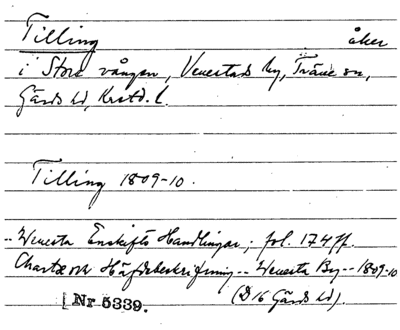 Tilling åker
i Stora vången, Venestads by, Träne sn,
Gärds hd, Krstd. l.
Tilling 1809-10.
-- Wenesta Enskifts Handlingar; fol. 174 ff.
Charta och Häfdebeskrifning -- Wenesta By -- 1809-10
(D 16 Gärds hd).
[Nr 5339.